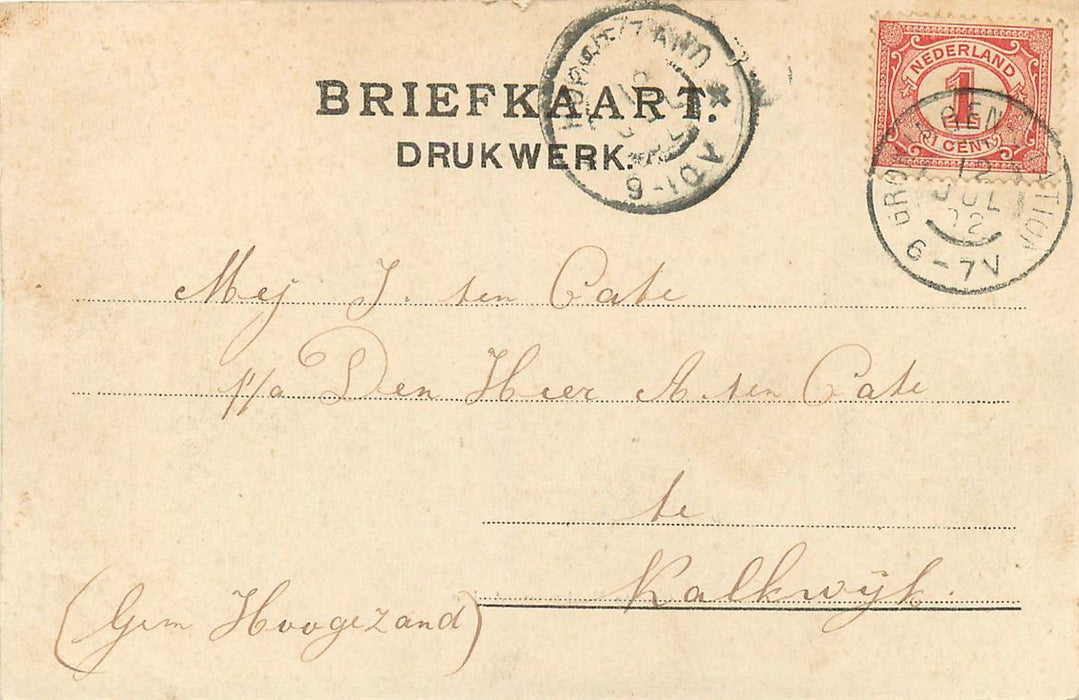 BRIEFKAART.
DRUKWERK.
9-10V
NEDERLAND
1
1 CENT
12
JUL
02
6-7V
Mej J. ten Cate
p/a Den Heer A. ten Cate
te
Kalkwijk.
(Gem Hoogezand)